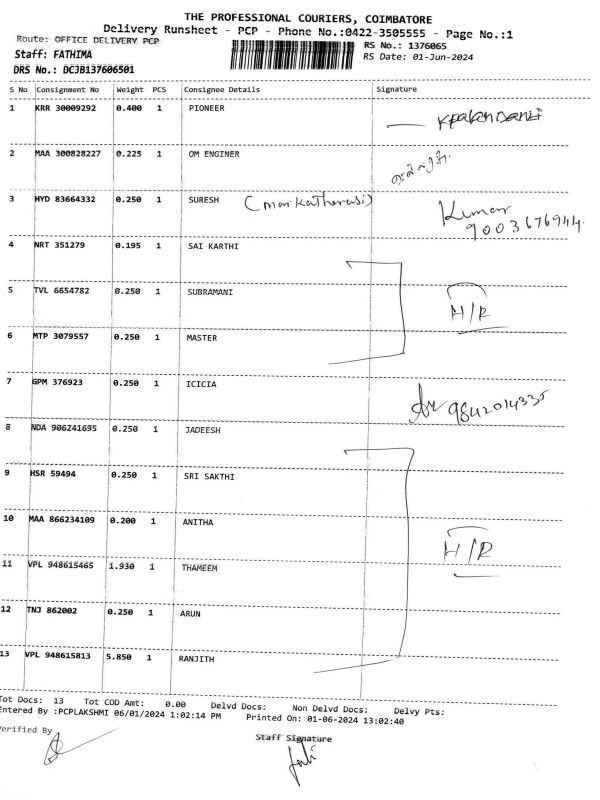 THE PROFESSIONAL COURIERS, COIMBATORE
Delivery Runsheet - PCP - Phone No.:0422-3505555 - Page No.:1
Route: OFFICE DELIVERY PCP
RS No.: 1376065
Staff: FATHIMA
RS Date: 01-Jun-2024
DRS No.: DCJB137606501
S No Consignment No Weight PCS Consignee Details Signature
1 KRR 30009292 0.400 1 PIONEER
2 MAA 300828227 0.225 1 OM ENGINER
3 HYD 83664332 0.250 1 SURESH (markatharasi) Kumar
9003676944
4 NRT 351279 0.195 1 SAI KARTHI
5 TVL 6654782 0.250 1 SUBRAMANI H/R
6 MTP 3079557 0.250 1 MASTER
7 GPM 376923 0.250 1 ICICIA 9842014335
8 NDA 906241695 0.250 1 JADEESH
9 HSR 59494 0.250 1 SRI SAKTHI
10 MAA 866234109 0.200 1 ANITHA H/R
11 VPL 948615465 1.930 1 THAMEEM
12 TNJ 862002 0.250 1 ARUN
13 VPL 948615813 5.850 1 RANJITH
Tot Docs: 13 Tot COD Amt: 0.00 Delvd Docs: Non Delvd Docs: Delvy Pts:
Entered By :PCPLAKSHMI 06/01/2024 1:02:14 PM Printed On: 01-06-2024 13:02:40
Verified By
Staff Signature